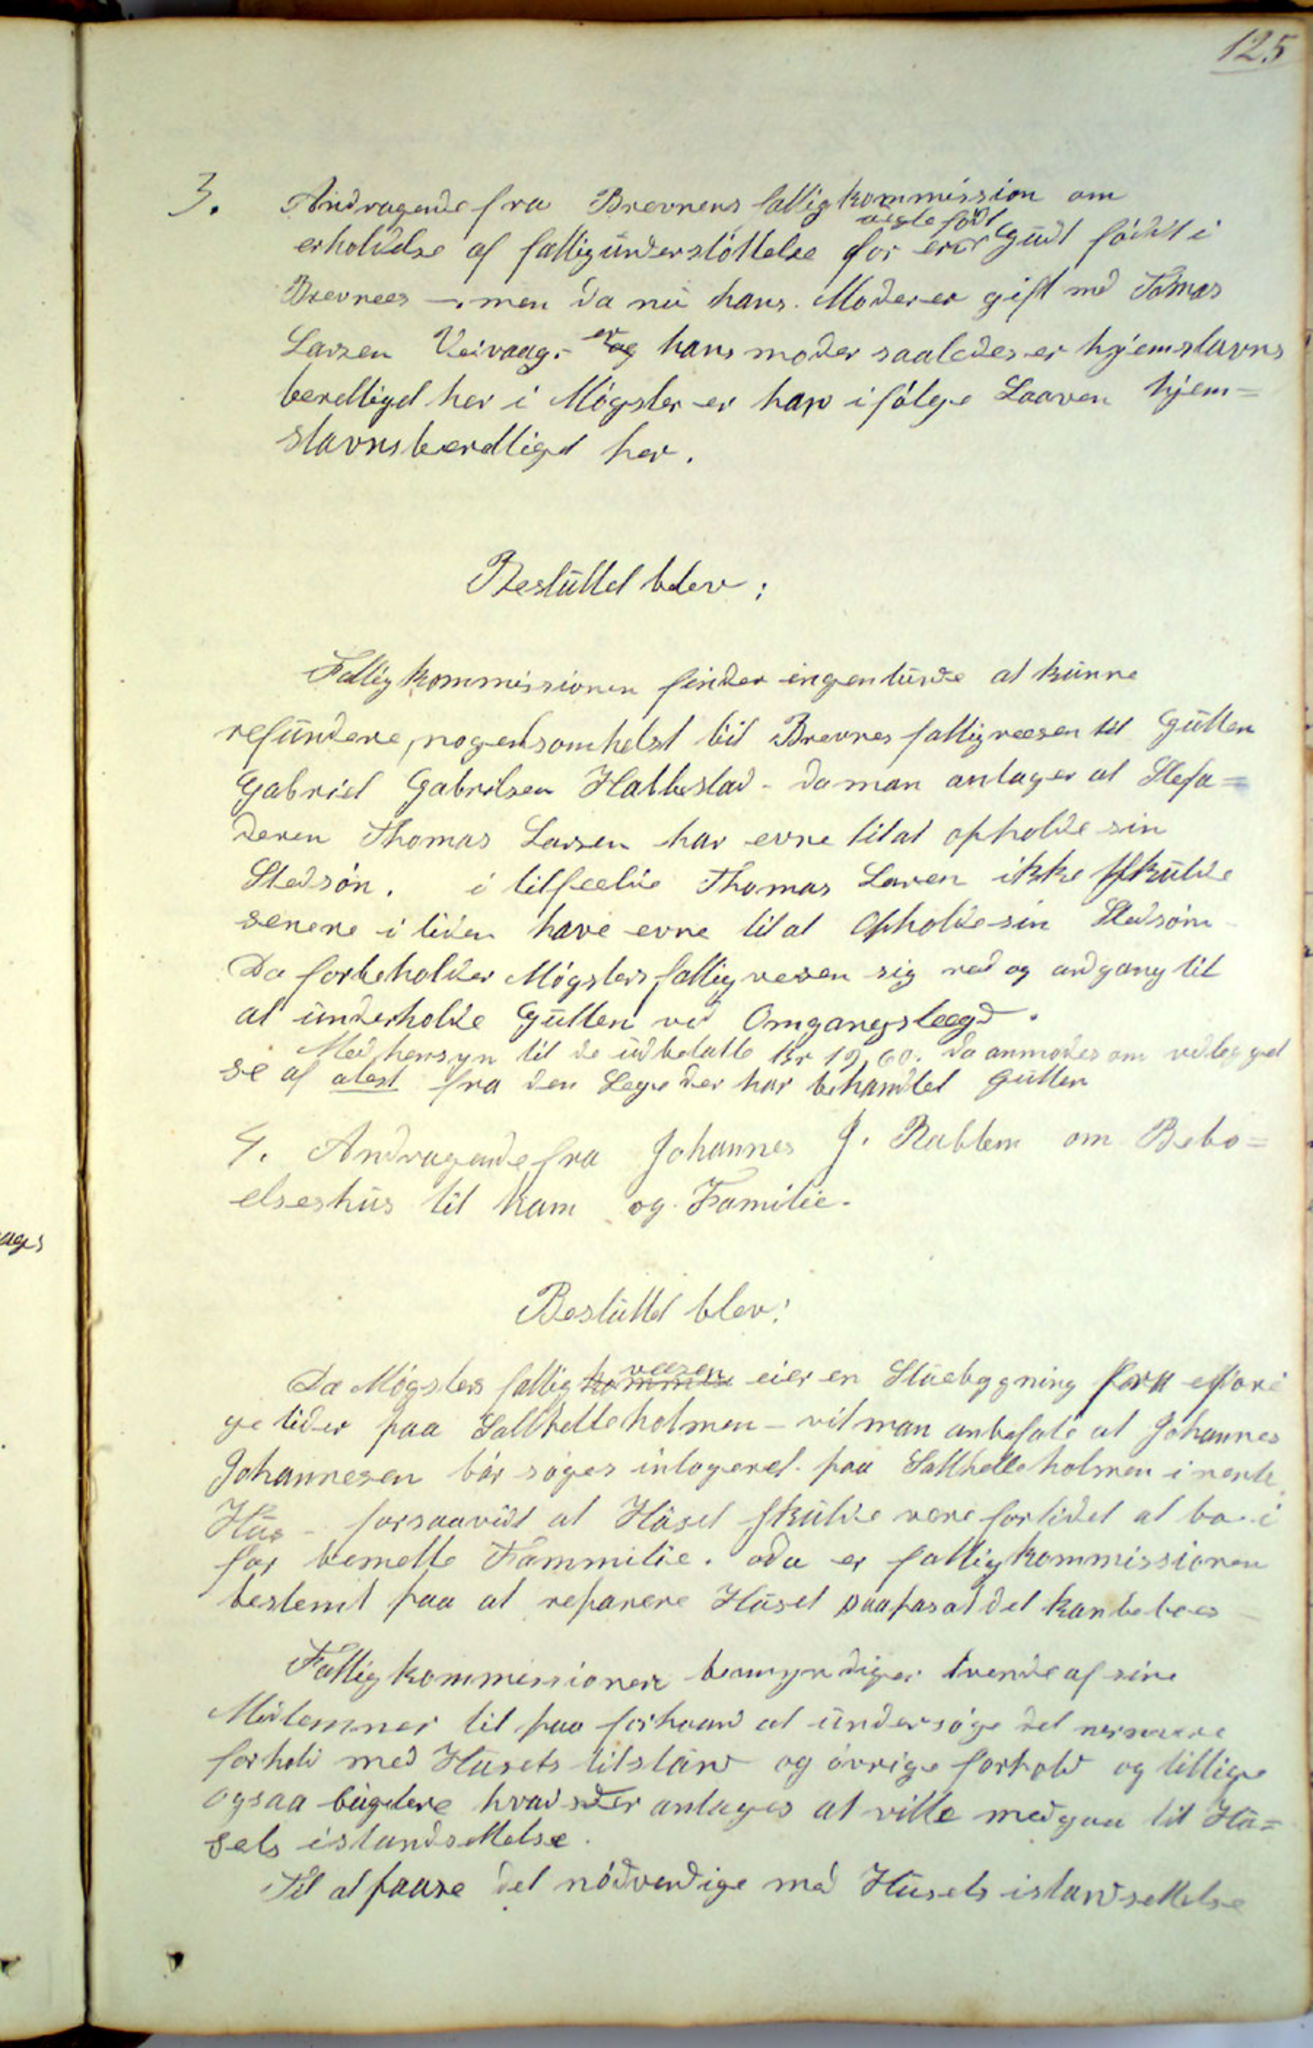 125
3. Andragende fra Bremnens fattigkommission om
ægtefödt
erholdelse af fattigünderstöttelse for en Gütt föddt i
Bremnes - men da nü hans Moder er gift med Tomas
Larsen Veivaag - er hans moder saaledes er hjemstavns
beretliget her i Mögster er han ifölge Laaven hjem=
stavnsberetliget her.
Beslüttet blev:
Fattigkommissionen finder ingenlünde at künne
refündere, nogetsomhelst til Bremnes fattigvæsen til Gütten
Gabriel Gabrielsen Habbestad - da man antager at Stefa=
deren Thomas Larsen har evne til at opholde sin
Stedsön. i tilfælde Thomas Larsen ikke skülde
senere i tiden have evne til at Opholde sin Stedsön -
Da forbeholder Mögsters fattigvesen sig ret og adgang til
at ünderholde Gütten ved Omgangslægd.
Med hensyn til de üdbetalte Kr 19,60. da anmodes om vedleggel
se af atest fra den Lege der har behandlet Gütten
4. Andragende fra Johannes J. Rabben om Bebo=
elseshüs til ham og Familie.
Beslüttet blev:
væsen
Da Mögsters fattig kommis eier en Stüebygning fra forri
ge tider paa Salthelleholmen - vil man anbefale at Johannes
Johannesen bör söges inlogeret paa Salthelleholmen i nevnte
Hüs - forsaavidt at Hüset skülde vere forlidet at bo i
for bemelte Fammilie. da er fattigkommissionen
bestemt paa at reparere Hüset saapas at det kan beboes -
Fattigkommissionen bemyndiger tvende af sine
Medlemmer til paa forhaand at ündersöge det nermere
forhold med Hüsets tilstand og övrige forhold og tillige
ogsaa büdgetere hvad der antages at ville medgaa til Hü=
sets istandsettelse.
Til at paase det nödvendige med Hüsets istandsettelse